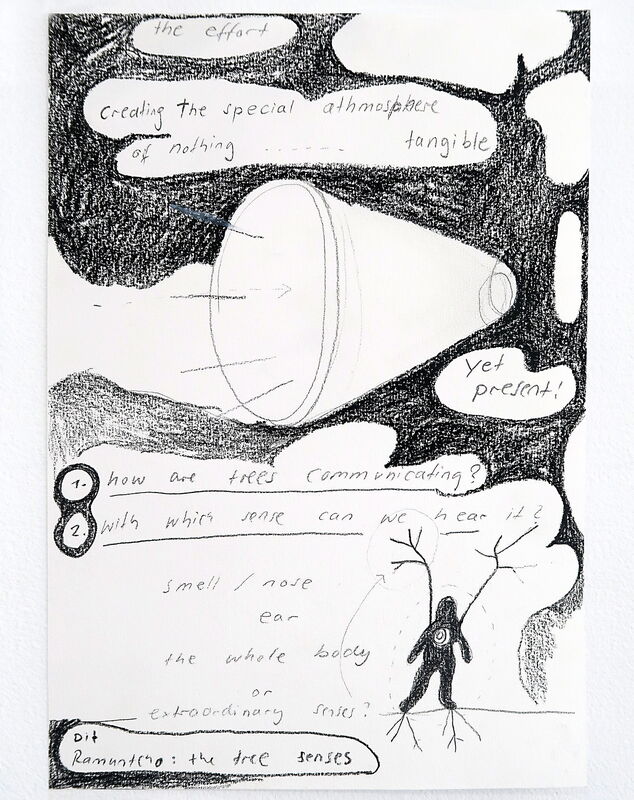 the effort
creating the special athmosphere
of nothing ....... tangible
yet
present!
1. how are trees communicating?
2. with which sense can we hear it?
smell / nose
ear
the whole body
or
extraordinary senses?
: the tree senses